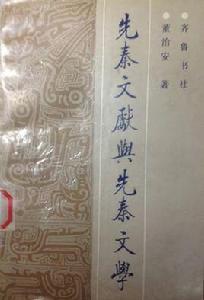 先秦文獻與先秦文學
董治安 著
齐鲁书社